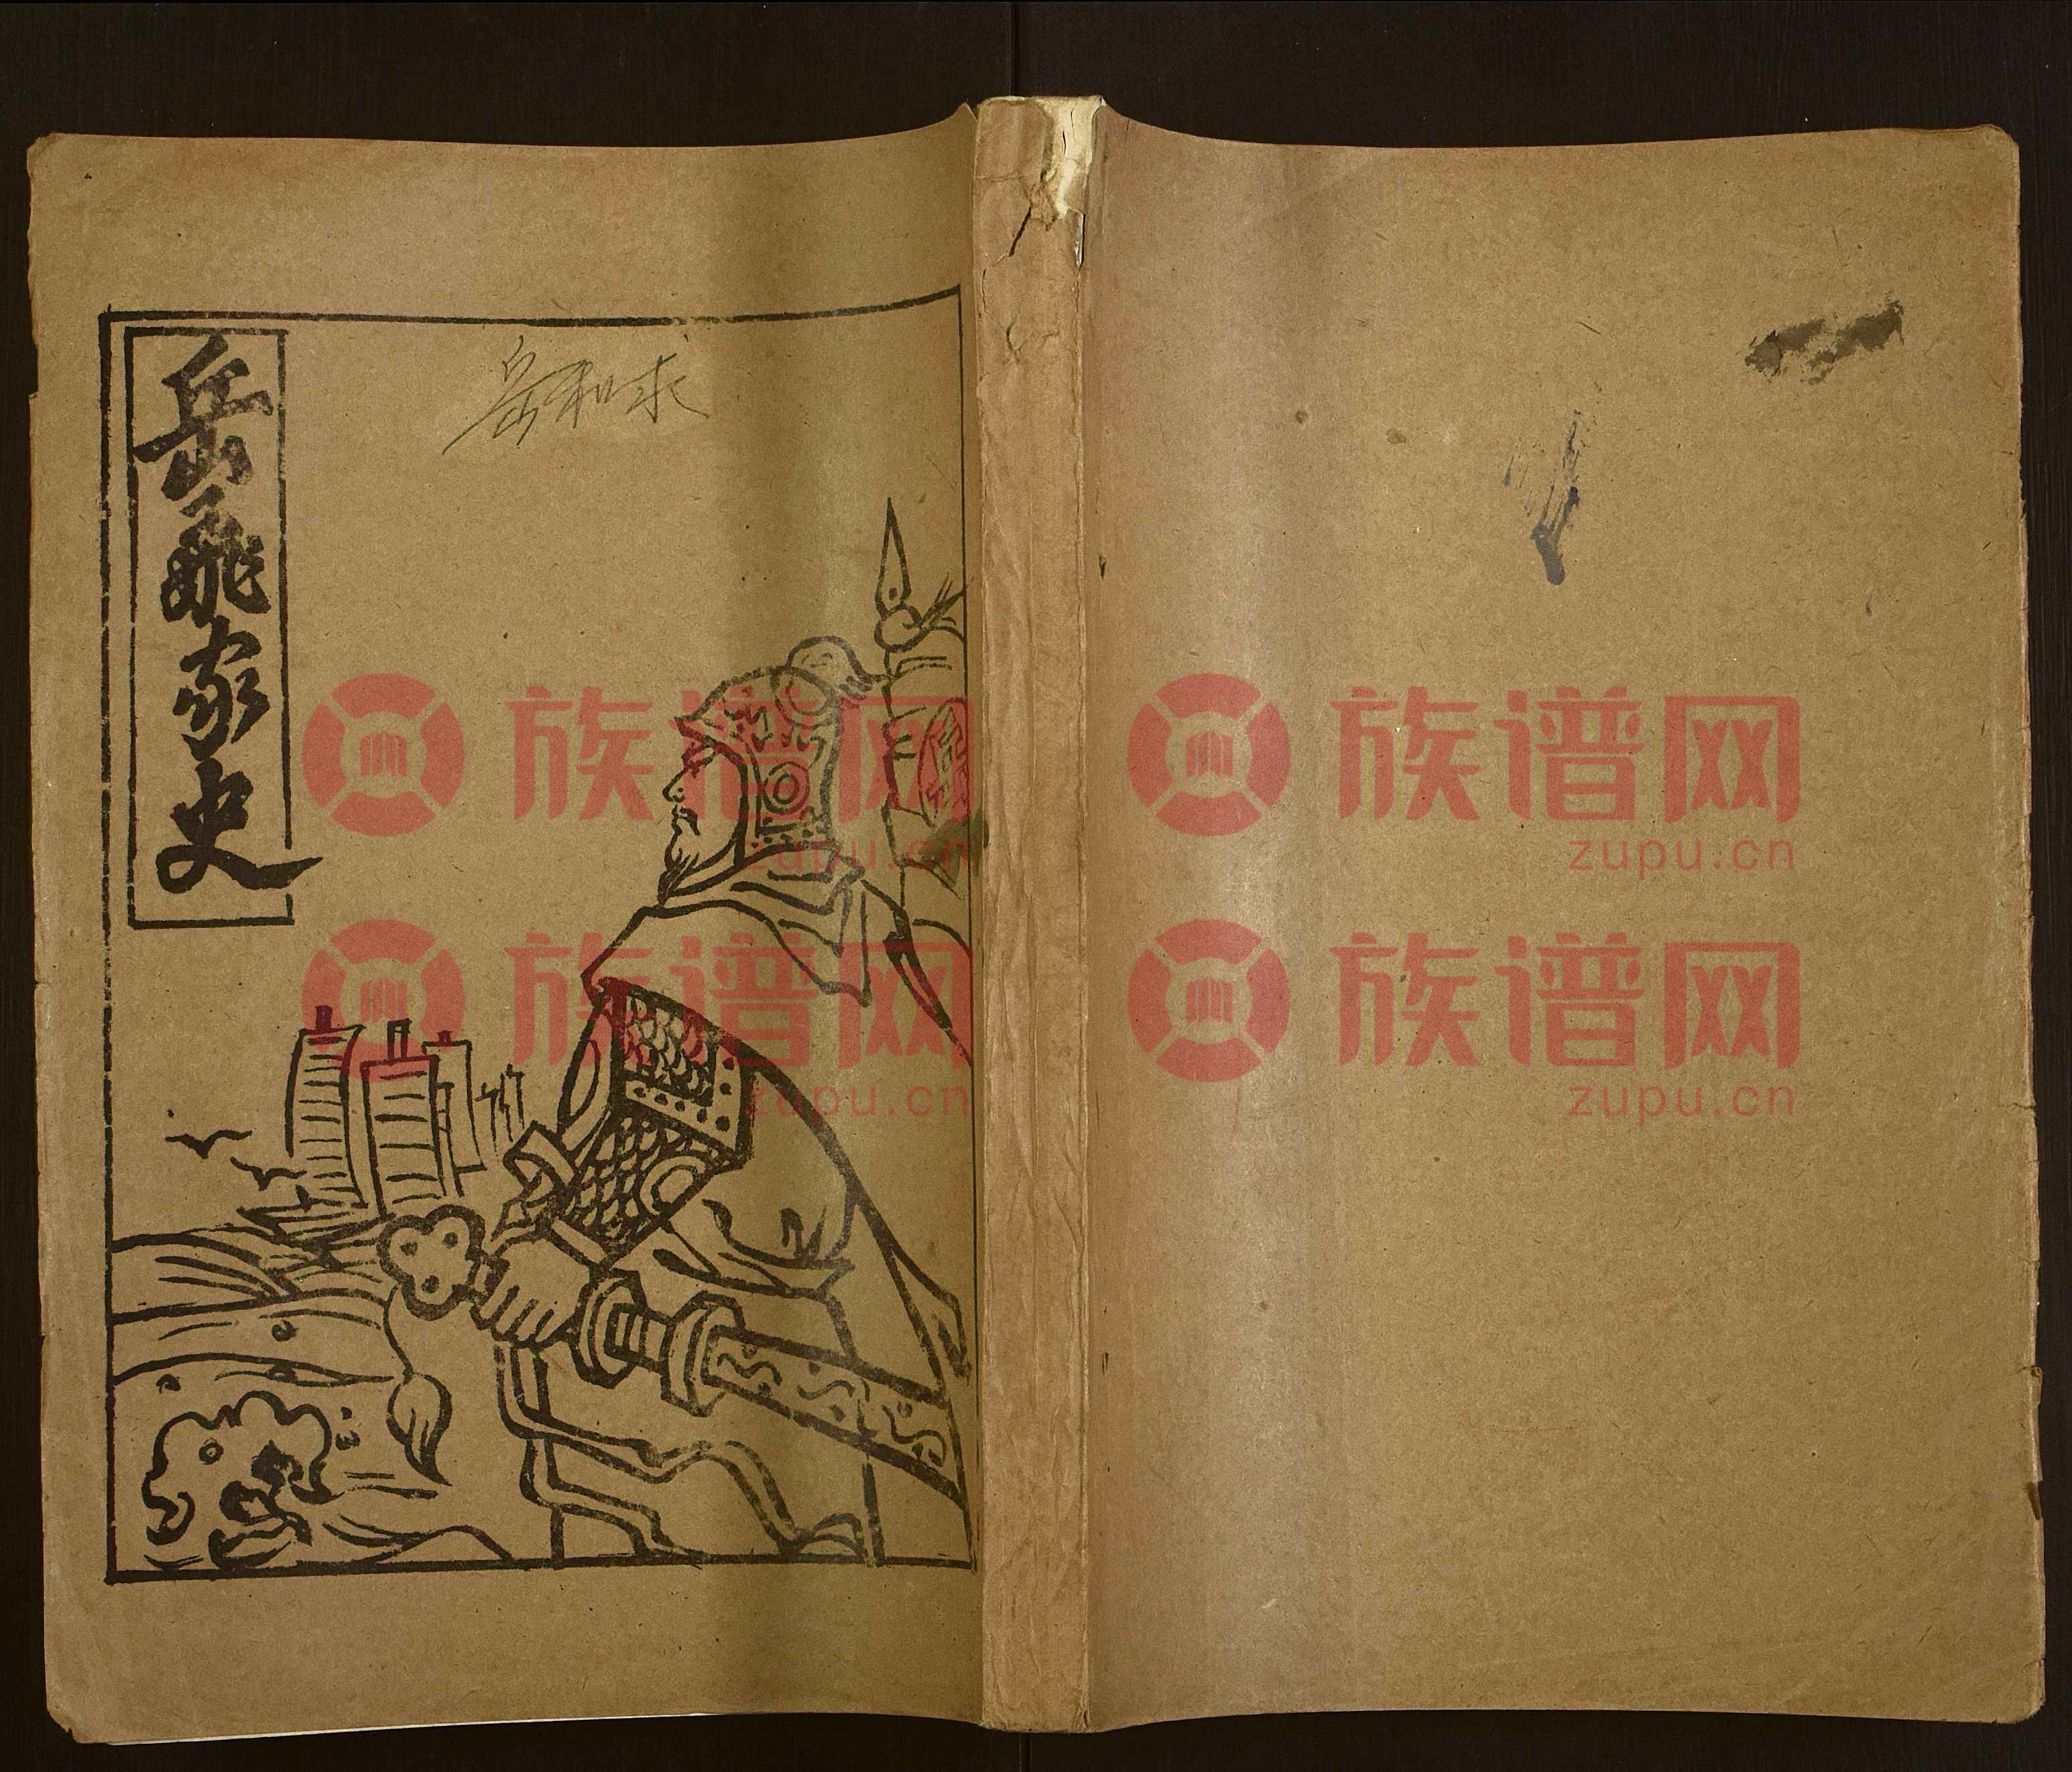 岳飛家史
岳和求
族谱网
zupu.cn
族谱网
zupu.cn
族谱网
zupu.cn
族谱网
zupu.cn